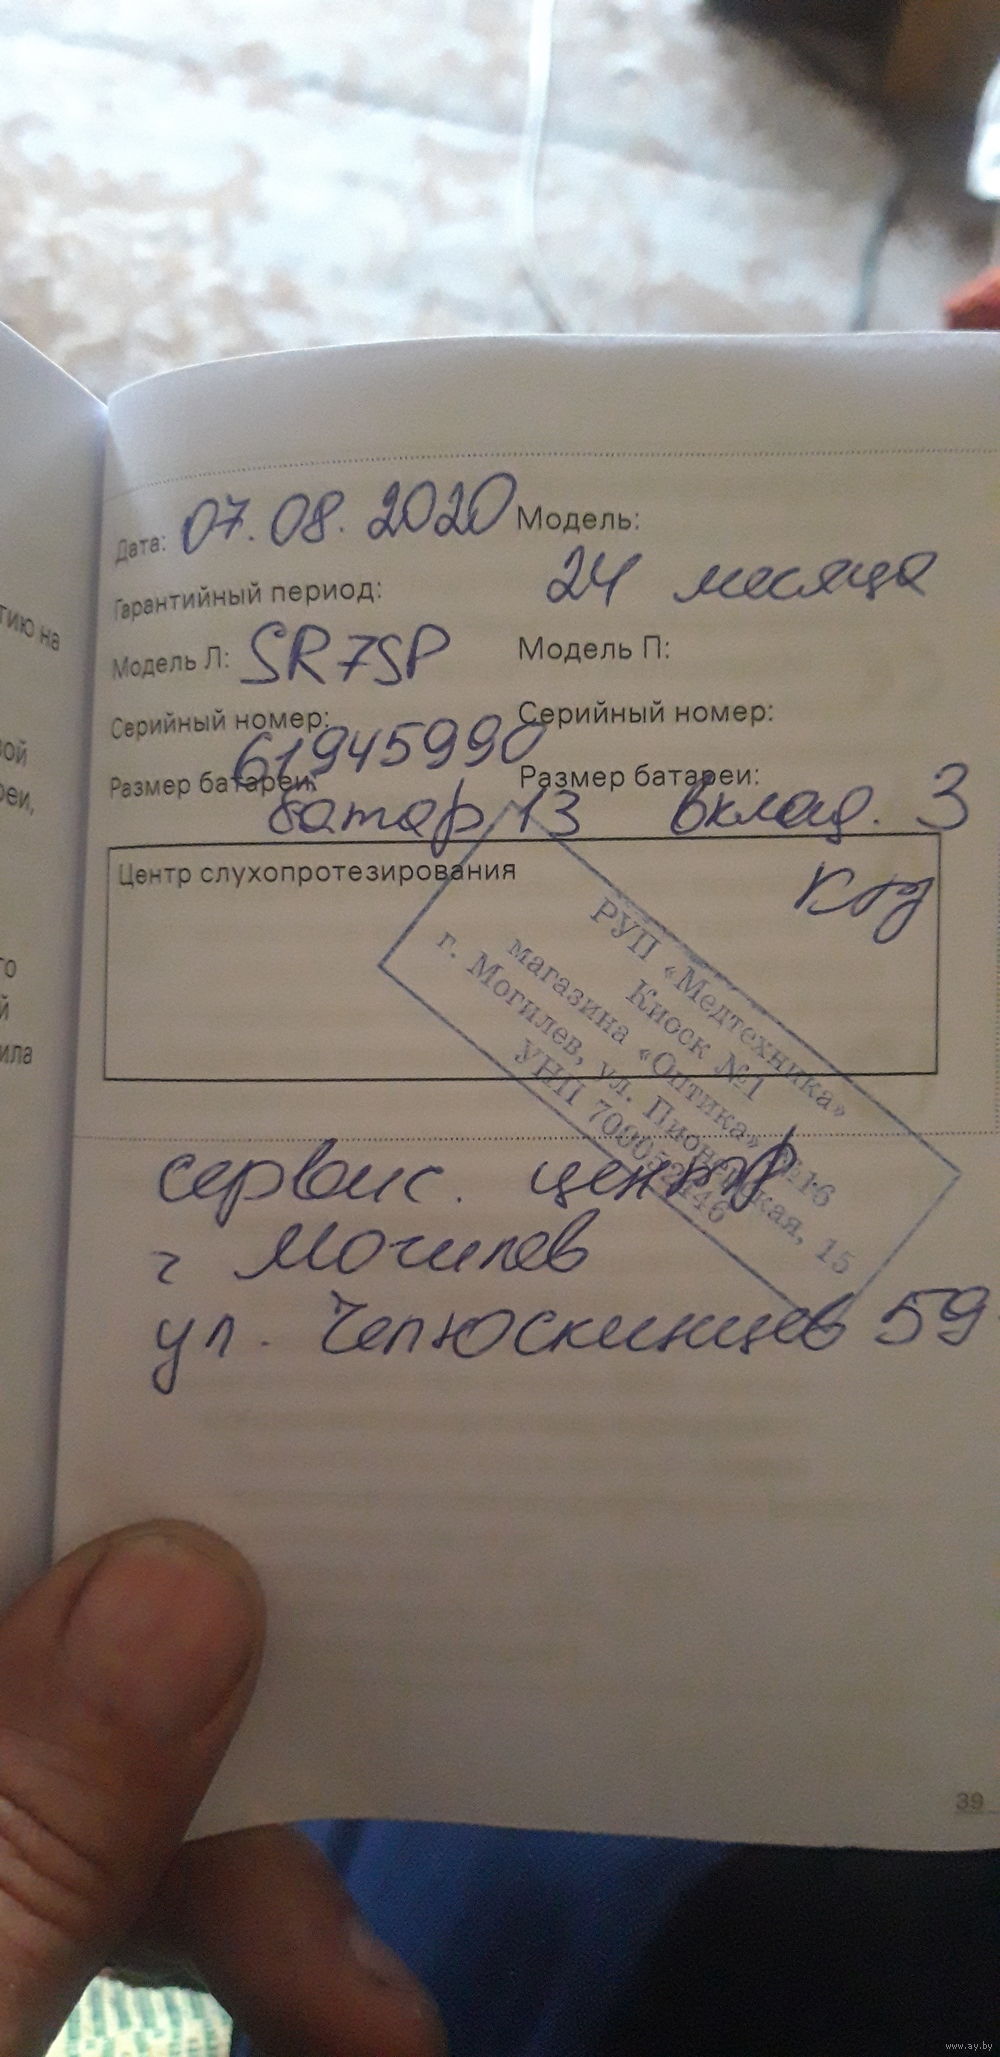 тию на
вой
реи,
го
й
ила
Дата: 07.08.2020 Модель:
Гарантийный период: 24 месяца
Модель Л: SR7SP Модель П:
Серийный номер: 61945990 Серийный номер:
Размер батареи: батар 13 Размер батареи: вклад. 3
Центр слухопротезирования
РУП «Медтехника»
Киоск №1
магазина «Оптика» №16
г. Могилев, ул. Пионерская, 15
УНП
сервис. центр
г Могилев
ул. Челюскинцев 59
39
www.ay.by